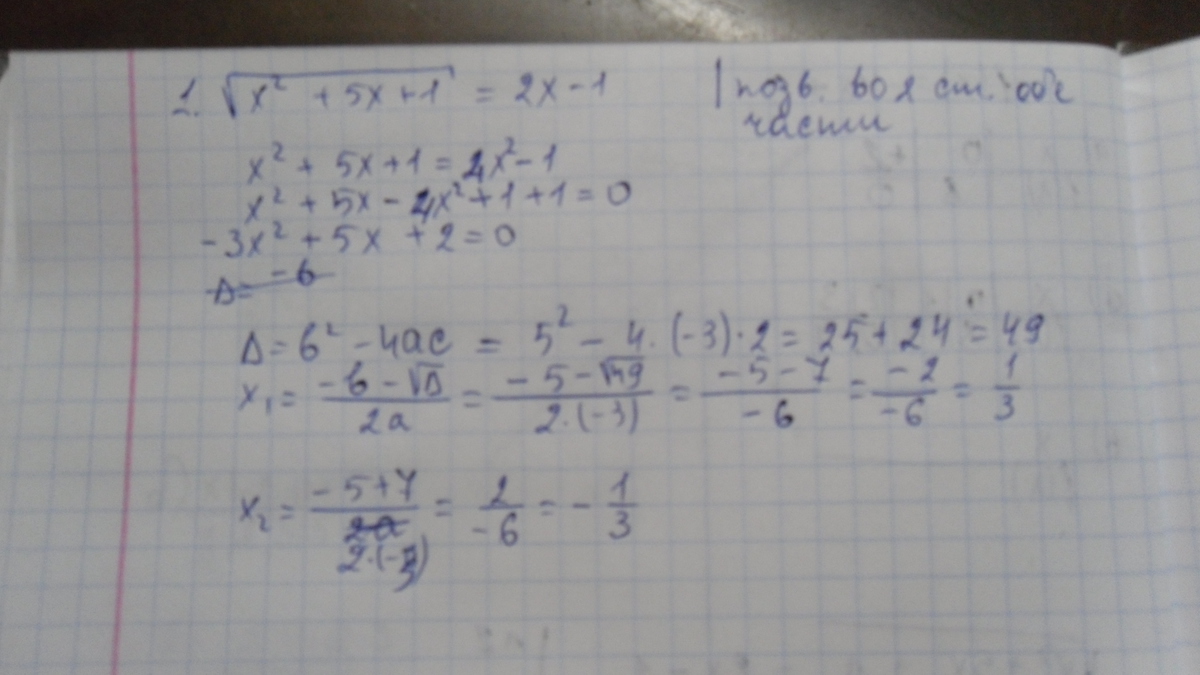 1. √(x² + 5x + 1) = 2x - 1 | позв. во 2 ст. обе
части
x² + 5x + 1 = 4x² - 1
x² + 5x - 4x² + 1 + 1 = 0
-3x² + 5x + 2 = 0
Δ = -b
Δ = b² - 4ac = 5² - 4 · (-3) · 2 = 25 + 24 = 49
x₁ = (-b - √Δ)/(2a) = (-5 - √49)/(2 · (-3)) = (-5 - 7)/(-6) = (-2)/(-6) = 1/3
x₂ = (-5 + 7)/(2 · (-3)) = 2/(-6) = - 1/3